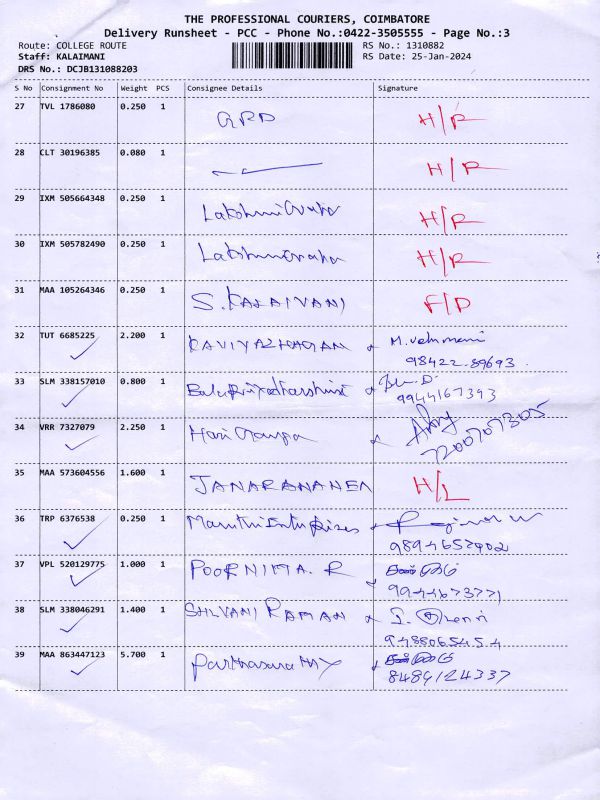 THE PROFESSIONAL COURIERS, COIMBATORE
Delivery Runsheet - PCC - Phone No.:0422-3505555 - Page No.:3
Route: COLLEGE ROUTE RS No.: 1310882
Staff: KALAIMANI RS Date: 25-Jan-2024
DRS No.: DCJB131088203
S No Consignment No Weight PCS Consignee Details Signature
27 TVL 1786080 0.250 1 GRD H/R
28 CLT 30196385 0.080 1 H/R
29 IXM 505664348 0.250 1 H/R
30 IXM 505782490 0.250 1 H/R
31 MAA 105264346 0.250 1 S. KALAIVANI F/D
32 TUT 6685225 2.200 1 KAVIYAZHAGAN
98422 89693
33 SLM 338157010 0.800 1
9944167393
34 VRR 7327079 2.250 1 Hari
7200707305
35 MAA 573604556 1.600 1 H/L
36 TRP 6376538 0.250 1 Maruthi Enterprises
9894652402
37 VPL 520129775 1.000 1 POORNIMA. R
9944673771
38 SLM 338046291 1.400 1 SHIVANI RAMAN
39 MAA 863447123 5.700 1
8489124337